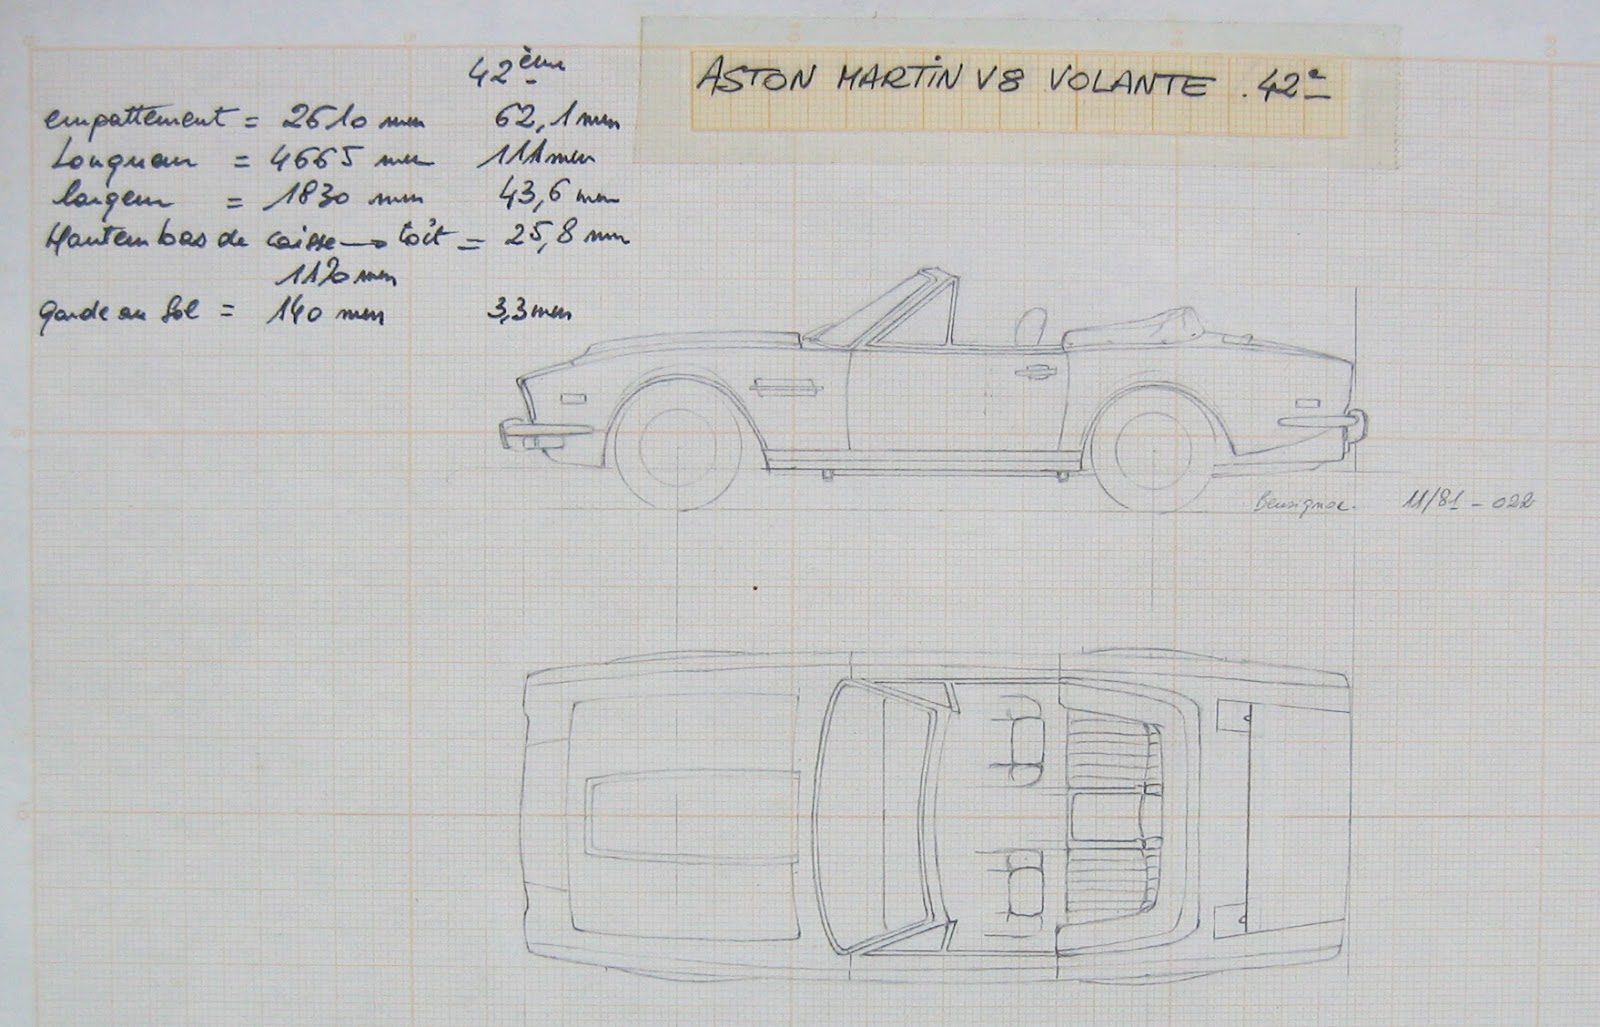 ASTON MARTIN V8 VOLANTE . 42e
42ème
empattement = 2610 mm 62,1 mm
Longueur = 4665 mm 111 mm
largeur = 1830 mm 43,6 mm
Hauteur bas de caisse → toît = 25,8 mm
1120 mm
garde au sol = 140 mm 3,3 mm
11/81 - 022